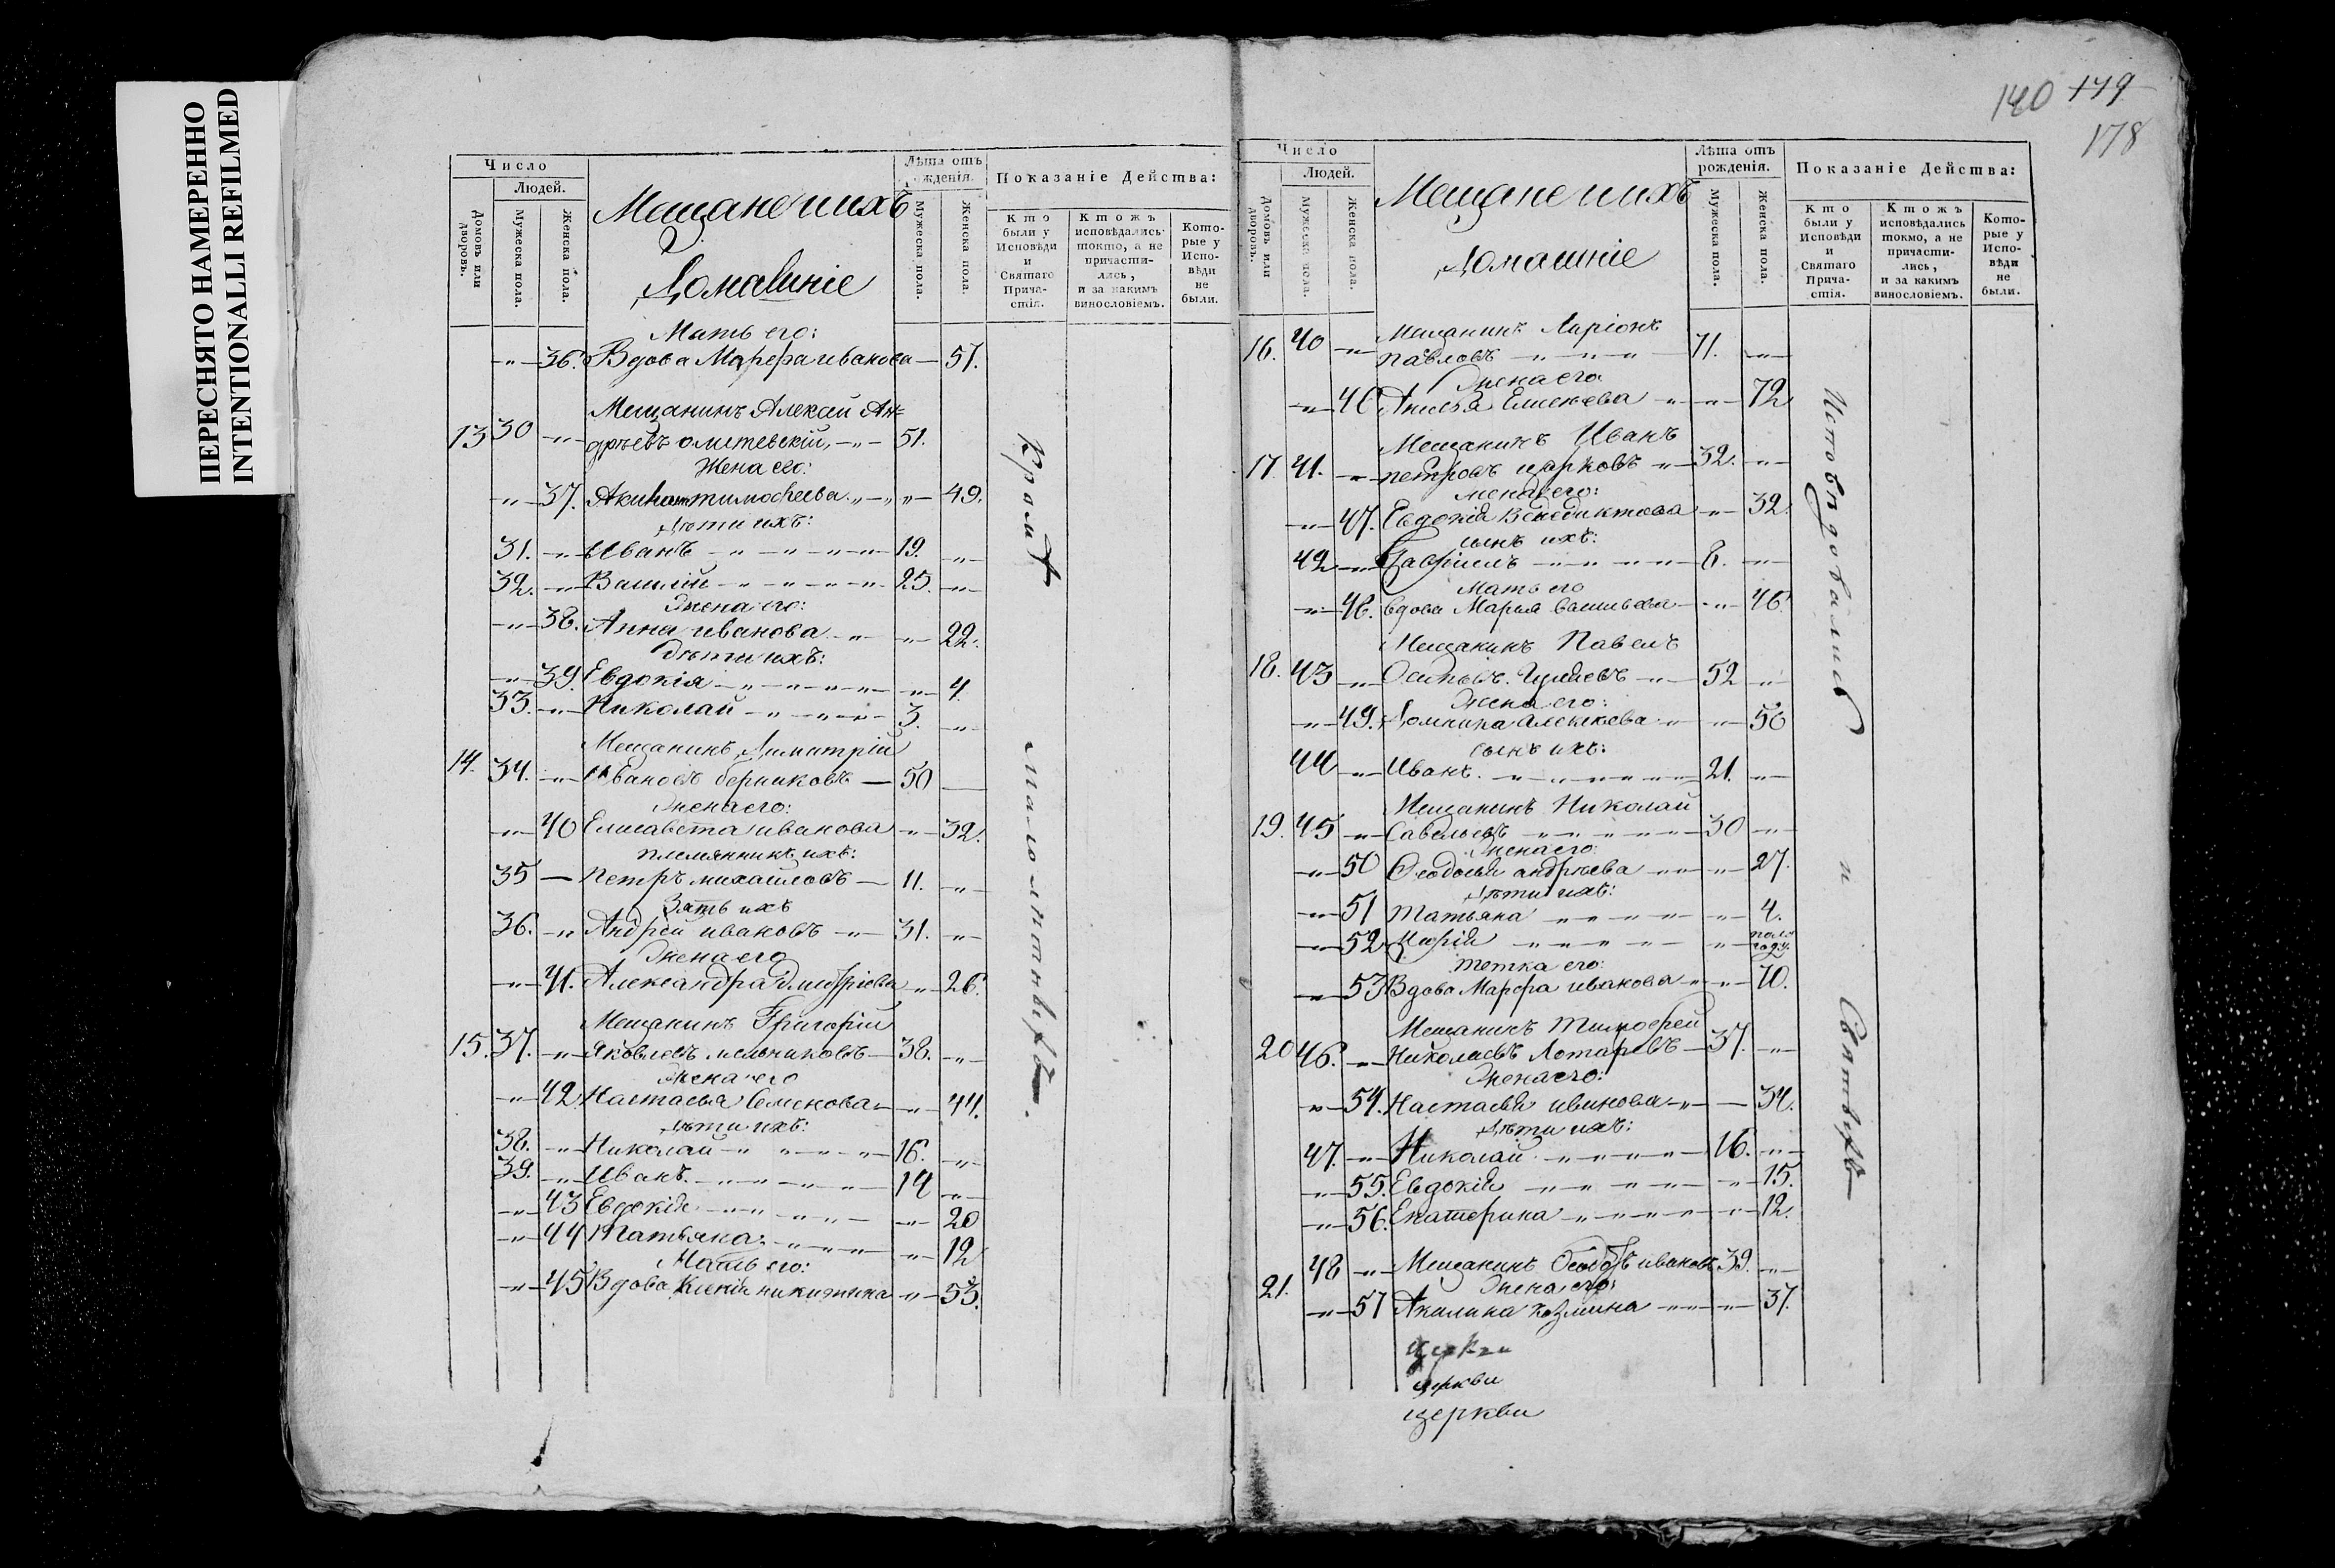 ПЕРЕСНЯТО НАМЕРЕННО
INTENTIONALLI REFILMED
Число
Людей.
Домовъ или дворовъ.
Мужеска пола.
Женска пола.
Мещане и ихъ
Домашніе
Лѣта отъ рожденія.
Мужеска пола.
Женска пола.
Показаніе Действа:
Кто были у Исповѣди и Святаго Прича-стія.
Ктожъ исповѣдались токмо, а не причасти-лись, и за какимъ винословіемъ.
Кото-рые у Испо-вѣди не были.
Мать его:
36. Вдова Марфа иванова 57.
Мещанинъ Алексѣй Ан=
13 30 дрѣевъ 51.
Жена его:
37. тимофеева 49.
Дѣти ихъ:
31. Иванъ 19.
32. Василій 25.
Жена его:
38. Анна иванова 22.
дѣти ихъ:
39. Евдокія 4
33. Николай 3.
Мещанинъ Димитрій
14. 34. Ивановъ берниковъ 50
Жена его:
40 Елисавета иванова 32.
племянникъ ихъ:
35 Петръ михайловъ 11.
Зять ихъ
36. Андрей ивановъ 31.
Жена его
41. Александра дмитріева 26.
Мещанинъ Григорій
15. 37. Яковлевъ мельниковъ 38.
Жена его
42 Настасья Семенова 44.
Дѣти ихъ:
38. Николай 16.
39. Иванъ 14
43 Евдокія 20
44 Татьяна 12
Мать его:
45 Вдова никитина 53.
Кромѣ малолѣтныхъ.
140 179
178
Число
Людей.
Домовъ или дворовъ.
Мужеска пола.
Женска пола.
Мещане и ихъ
Домашніе
Лѣта отъ рожденія.
Мужеска пола.
Женска пола.
Показаніе Действа:
Кто были у Исповѣди и Святаго Прича-стія.
Ктожъ исповѣдались токмо, а не причасти-лись, и за какимъ винословіемъ.
Кото-рые у Испо-вѣди не были.
Мещанинъ Ларіонъ
16. 40 павловъ 71.
Жена его
46 Анисья Елисеева 72
Мещанинъ Иванъ
17 41. петровъ царковъ 32.
жена его:
47. Евдокія Венедиктова 32
сынъ ихъ:
42 Гавріилъ 8.
Мать его
48. вдова Марья васильева 46.
Мещанинъ Павелъ
18. 43 Осиповъ 52
Жена его:
49. Домника алексеева 50
сынъ ихъ:
44 Иванъ. 21.
Мещанинъ Николай
19. 45 Савельевъ 30
Жена его:
50 Феодосья андрѣева 27.
Дѣти ихъ:
51 Татьяна 4.
52 Марія пол году.
тетка его:
53 Вдова Марфа иванова 70.
Мещанинъ Тимофей
20 46. Николаевъ Лотаревъ 37.
Жена его:
54. Настасья иванова 34.
Дѣти ихъ:
47. Николай 16.
55. Евдокія 15.
56. Екатерина 12.
48 Мещанинъ ивановъ 39.
21. Жена его:
57 Акилина козмина 37.
церкви
церкви
церкви
Исповѣдовались и Святыхъ